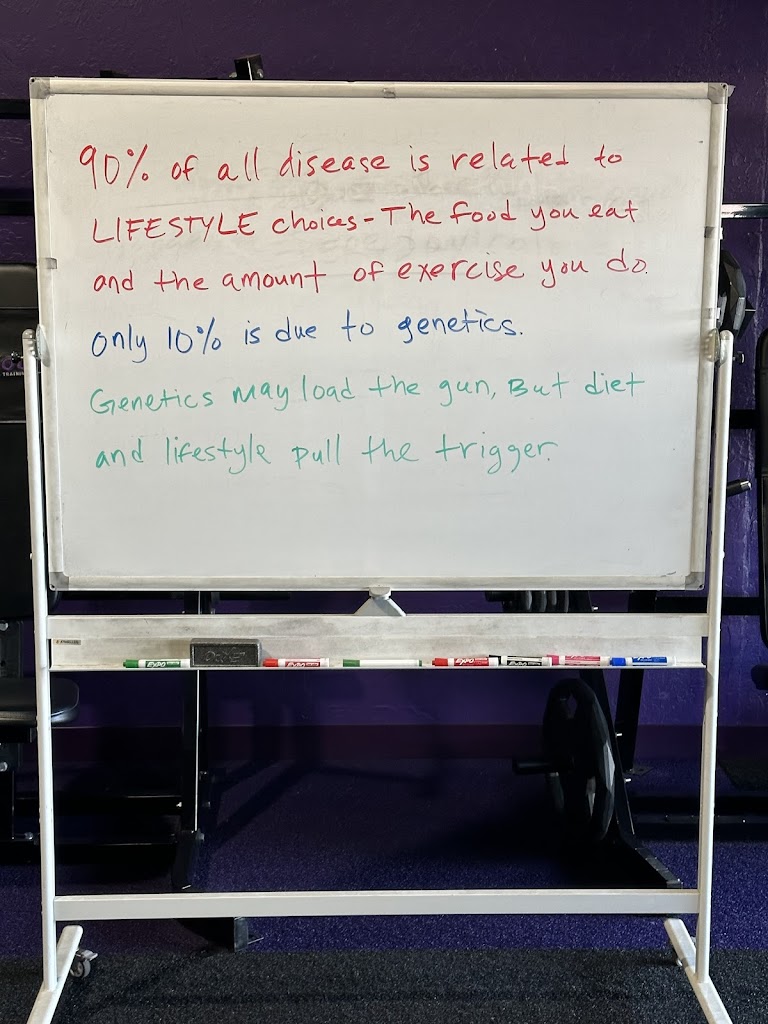 90% of all disease is related to
LIFESTYLE choices - The food you eat
and the amount of exercise you do.
only 10% is due to genetics.
Genetics may load the gun, But diet
and lifestyle pull the trigger.
EXPO
EXPO
EXPO
TRAINING